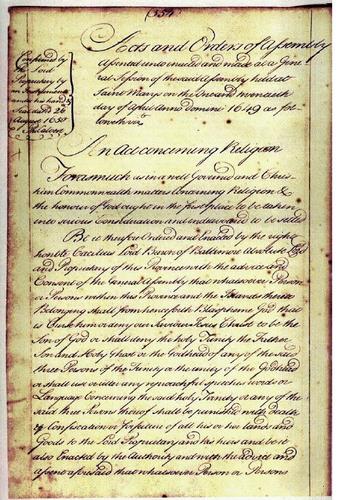 354
Confirmed by
Lord
Proprietary by
under his hand &
26
August 1650
Acts and Orders of Assembly
assented unto enacted and made at a Gene
rall Session of the said Assembly held at
Saint Marys on the one and twentieth
day of Aprill Anno Domini 1649 as fol
loweth viz
An Act concerning Religion
Forasmuch as in a well Governed and Chris
tian Commonwealth matters concerning Religion &
the honour of God ought in the first place to be taken
into serious Consideration and endeavoured to be settled
Be it therefore Ordered and Enacted by the right
honble Caecilius Lord Baron of Baltemore absolute Lord
and Proprietary of this Province with the advice and
Consent of this General Assembly that whatsoever Person
or Persons within this Province and the Islands thereto
Belonging shall from henceforth Blaspheme God that
is Curse him or deny our Saviour Jesus Christ to be the
Son of God or shall deny the holy Trinity the Father
Son and Holy Ghost or the Godhead of any of the said
three Persons of the Trinity or the unity of the Godhead
or shall use or utter any reproachful speeches words or
Language Concerning the said holy Trinity or any of the
said three Persons thereof shall be punished with death
& Confiscation or forfeiture of all his or her lands and
Goods to the Lord Proprietary and his heirs and be it
also Enacted by the Authority and with the advice and
assent aforesaid that whatsoever Person or Persons